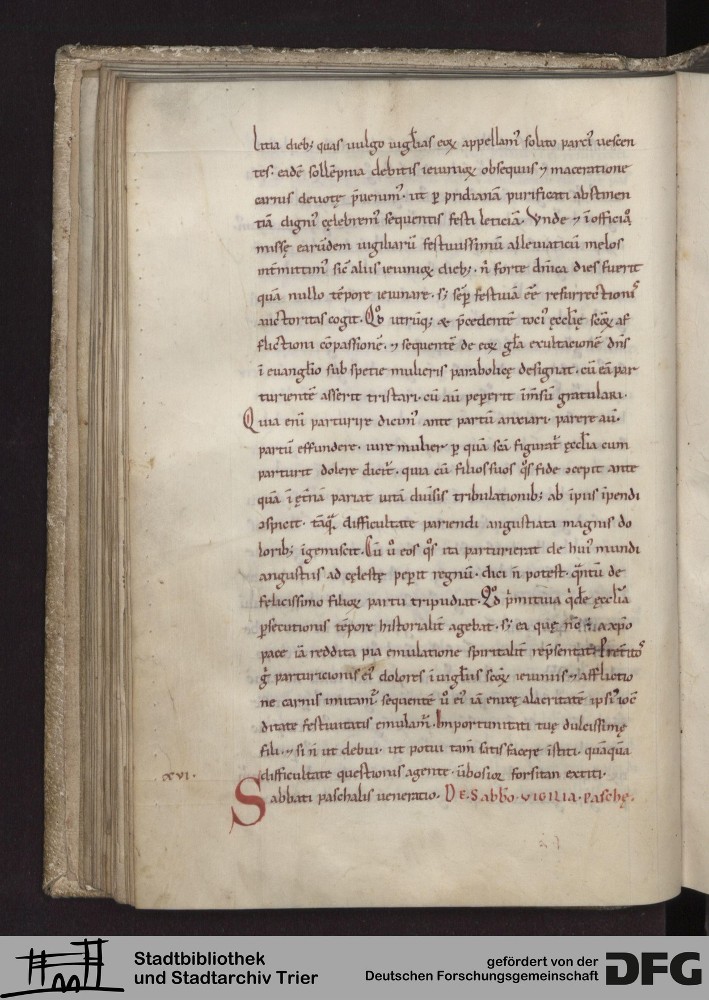 litia dieb; quas uulgo uigl̄ias eoꝝ appellamꝰ solito parciꝰ uescen
tes. eadē sollēpnia debitis ieiunioꝝ obsequiis ⁊ maceratione
carnis deuotę p̄uenimꝰ. ut ꝑ pridianā purificati abstinen
tiā digniꝰ cęlebremꝰ sequentis festi leticiā. Vnde ⁊ ī officiaꝗ
missę earūdem uigiliarū festiuissimū alleuiaticū melos
int̄mittimꝰ sic̄ aliis ieiunioꝝ dieb;. n̄ forte dn̄ica dies fuerit
quā nullo tēpore ieiunare. s; sēꝑ festiuā eē̄ resurrectionıſ
auctoritas cogit. Qd̄ utrūq; & p̄cedentē tociꝰ ęccl̄ię sc̄oꝝ af
flictioni cōpassionē. ⁊ sequentē de eoꝝ gl̄a exultacionē dn̄s
ī euangl̄io sub spetie mulieris parabolicę designat. cū eā par
turientē asserit tristari. cū aū peperit īmēsū gratulari.
Quia eni parturire dicimꝰ ante partū anxiari. parere aū.
partū effundere. iure mulier ꝑ quā sc̄a figurat̄ ęccl̄ia cum
parturit dolere dicit̄. quia cū filios suos q̊s fide ↄcepit ante
quā ī ęt̄nā pariat uitā diuīsis tribulationib; ab īpiis īpendi
ↄspicit. tāq̄ difficultate pariendi angustiata magnis do
lorib; īgemiscit. Cū u̇ eos q̊s ita parturierat de huiꝰ mundi
angustiis ad cęlestę peꝑit regnū. dici n̄ potest. q̄ntū de
felicissimo filioꝝ partu tripudiat. Qd̄ p̄mitiuia q̇dē ęccl̄ia
ꝑsecutionis tēpore historialit̄ agebat. s; ea quę nc̄
pace iā reddita pia emulatione spiritalit̄ rep̄sentat.
g̊ parturicionis eiꝰ dolores ī uigl̄iis sc̄oꝝ ieiuniis ⁊ afflictio
ne carnis imitam̄ꝰ sequentē u̇ eiꝰ iā enixę alacritatē ipsiꝰ iocū
ditate festiuitatis emulam̄. Importunitati tuę dulcissimę
fili. ⁊ si n̄ ut debui. ut potui tam̄ satisfacere īstiti. quāquā
difficultate questionis agente. ūbosior forsitan extiti.
.xvi.
Sabbati paschalis ueneratio. De sabb̄o. vigilia. paschę.
Stadtbibliothek
und Stadtarchiv Trier
gefördert von der
Deutschen Forschungsgemeinschaft
DFG